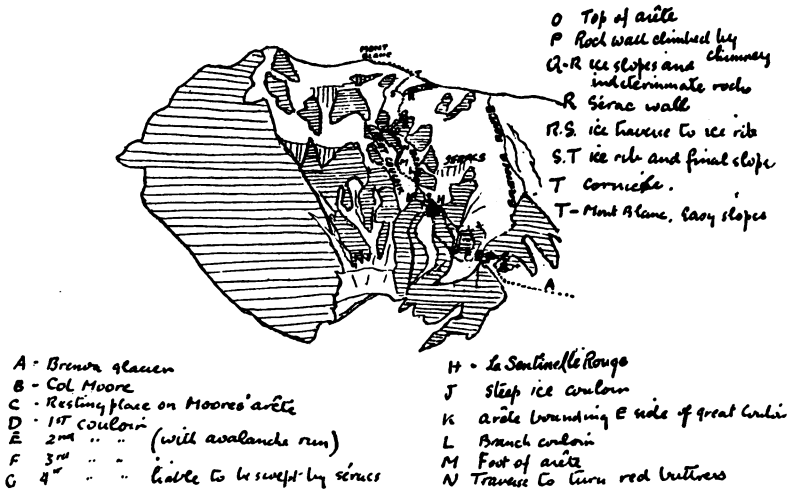 O Top of arête
P Rock wall climbed by chimney
Q-R ice slopes and indeterminate rocks
R Sérac wall
R.S. ice traverse to ice rib
S.T ice rib and final slope
T corniche.
T-Mont Blanc, easy slopes
MONT BLANC
SÉRACS
A
A - Brenva glacier
B - Col Moore
C - Resting place on Moore's arête
D - 1st couloir
E 2nd " " (with avalanche run)
F 3rd " "
G 4th " " liable to be swept by séracs
H - La Sentinelle Rouge
J Steep ice couloir
K arête bounding E side of great couloir
L Branch couloir
M Foot of arête
N Traverse to turn red buttress